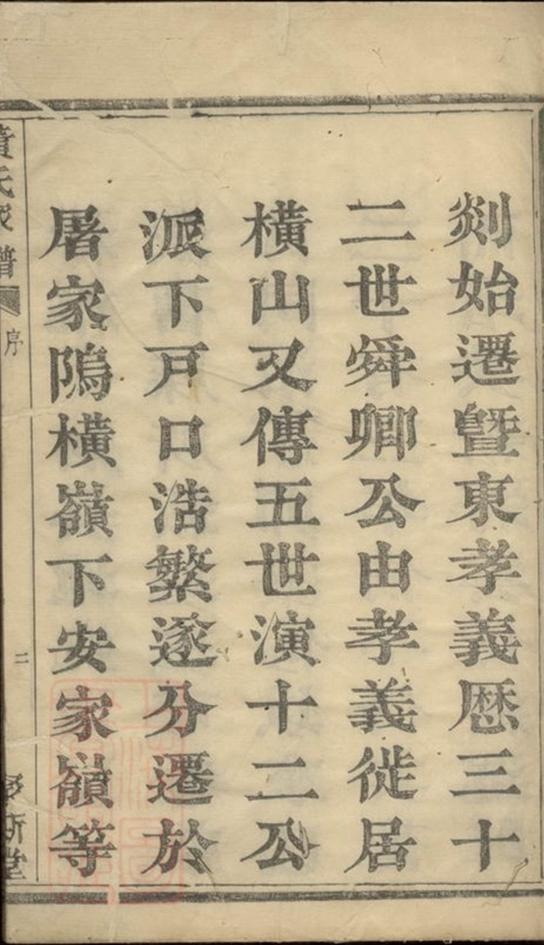 剡始遷暨東孝義歴三十
二世舜卿公由孝義徙居
橫山又傳五世演十二公
派下戸口浩繁遂分遷於
屠家隝橫嶺下安家嶺等
氏家譜
序
二